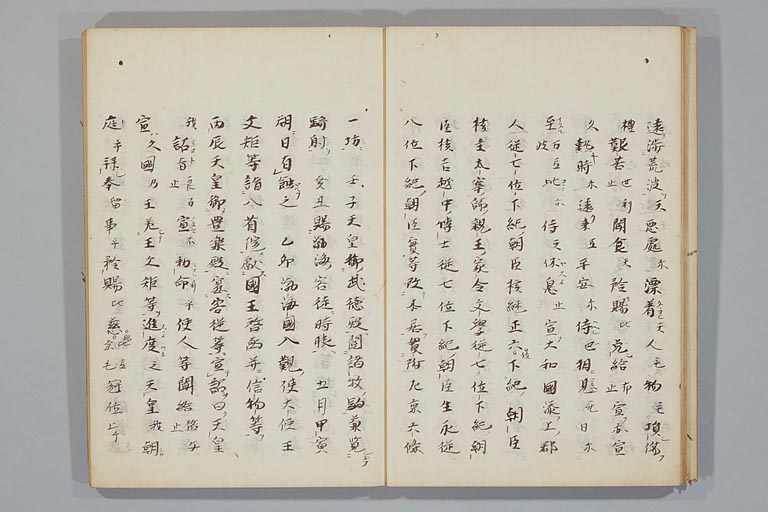 遠涉荒波天惡處尓漂着天人毛物毛損傷
禮艱苦世利聞食天矜賜比充給布宣不宣
久熱時尓遠来互平安尓侍也相見牟日尓
至万互波此尓侍天休息止宣大和國添上郡
人従七位下紀朝臣核継正六位下紀朝臣
核主太宰帥親王家令文學従七位下紀朝
臣核吉越中博士従七位下紀朝臣生永従
八位下紀朝臣貫等改本居貫附左京六條
一坊壬子天皇御武徳殿閲諸牧駒兼覧
騎射癸丑賜渤海客徒時服五月甲寅
朔日有蝕之乙卯渤海國入覲使大使王
文矩等詣八省院獻國王啓函并信物等
丙辰天皇御豊樂殿宴客徒等宣詔曰天皇
我詔旨良万止宣不勅命乎使人等聞給倍与止
宣久國乃王差王文矩等進度之天皇我朝
庭乎拜奉留事乎矜賜比慈賜比互奈毛冠位上